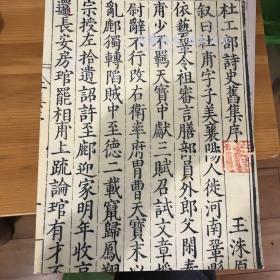 杜工部詩史舊集序
王洙原
叙曰甫字子美襄陽人徙河南鞏縣
依藝章令祖審言膳部員外郎父閑奉
甫少不羈天寶中獻三賦召試文章授
尉辭不行改右衛率府胄曹天寶末以
亂鄜獨轉陷賊中至德二載竄歸鳳翔
宗授左拾遺詔許至鄜迎家明年收京
長安房琯罷相甫上疏論琯有才